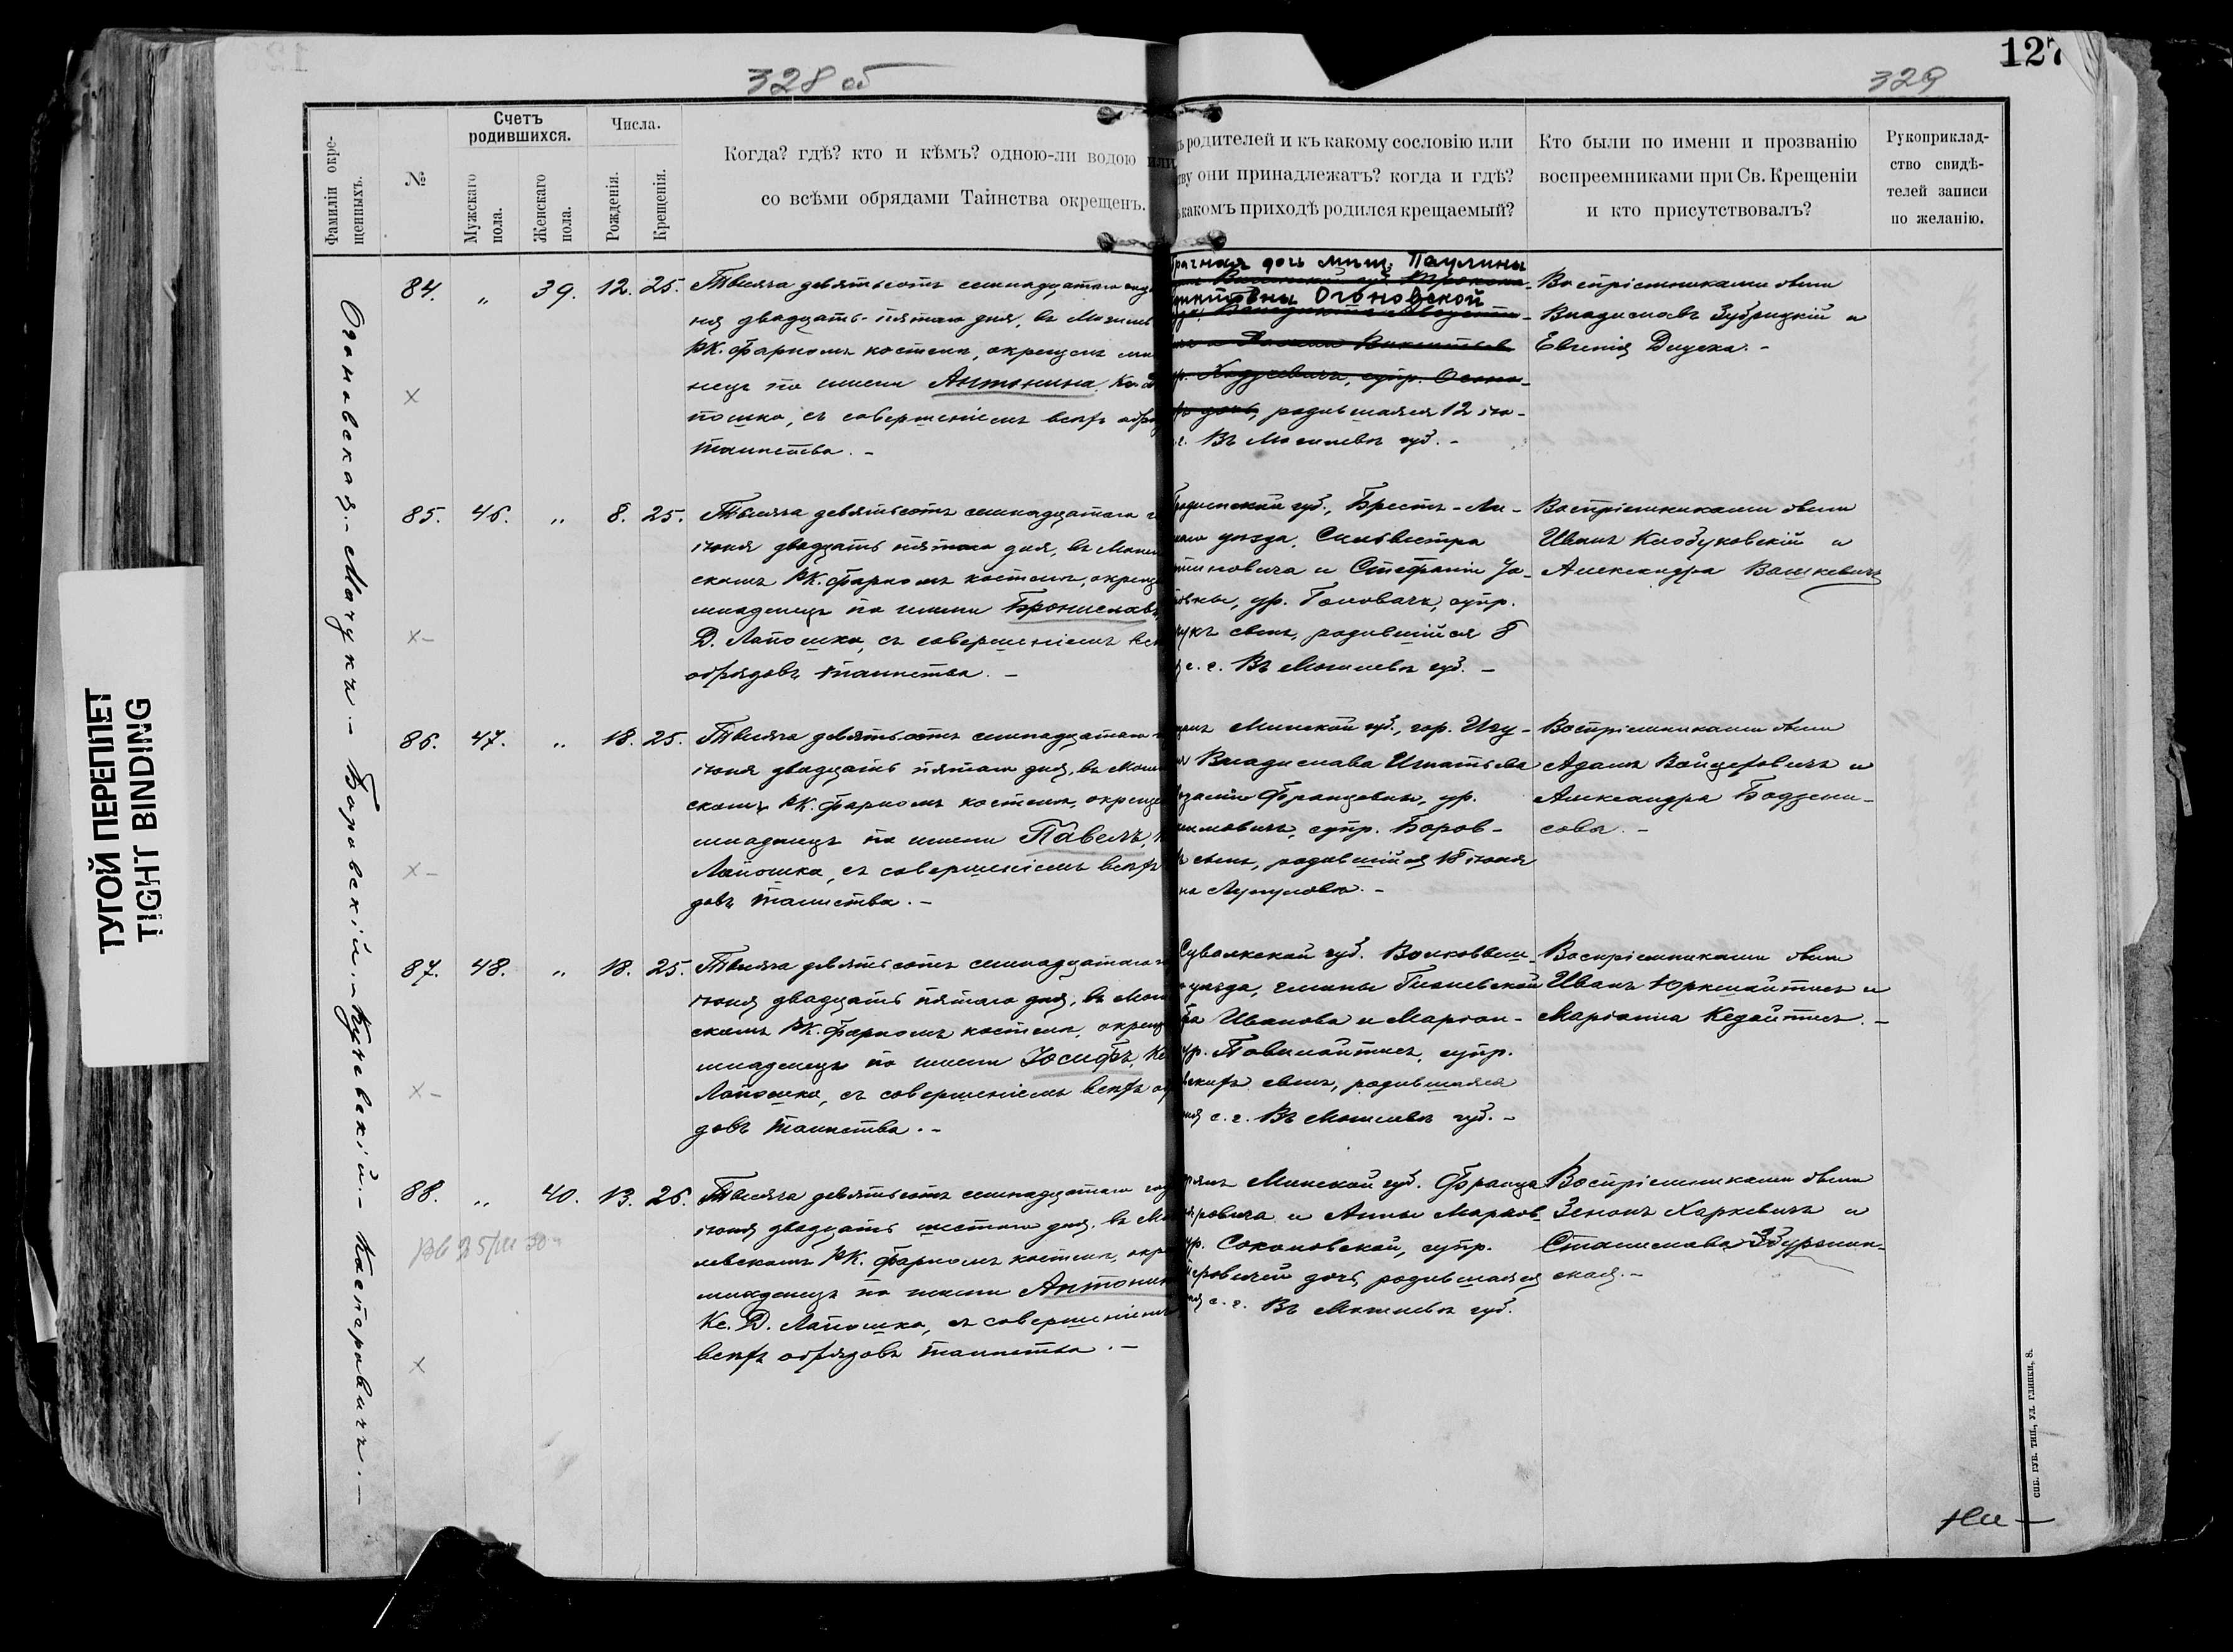 328 об
329
127
ТУГОЙ ПЕРЕПЛЕТ
TIGHT BINDING
Фамиліи окре-
щенныхъ.
№
Счетъ
родившихся.
Мужскаго
пола.
Женскаго
пола.
Числа.
Рожденія.
Крещенія.
Когда? гдѣ? кто и кѣмъ? одною-ли водою или
со всѣми обрядами Таинства окрещенъ.
родителей и къ какому сословію или
они принадлежатъ? когда и гдѣ?
какомъ приходѣ родился крещаемый?
Кто были по имени и прозванію
воспреемниками при Св. Крещеніи
и кто присутствовалъ?
Рукоприклад-
ство свидѣ-
телей записи
по желанію.
Огоновская.- Мачукъ.- Боровскій.- Куневскій.- Каспаровичъ.-
84. " 39. 12. 25.
Тысяча девятьсотъ семнадцатаго
ня двадцать-пятаго дня, въ Могилев
РК. фарномъ костелѣ, окрещенъ мла
нецъ по имени Антонина, Кс. Д
пошко, съ совершеніемъ всѣхъ обряд
таинства.-
дочь мѣщ. Паулины
Огоновской
родившаяся 12 ію-
Въ Могилевѣ губ.-
Воспріемниками были
Владиславъ Зубрицкій и
Евгенія Дицска.-
х
85. 46. " 8. 25.
Тысяча девятьсотъ семнадцатаго г
іюня двадцать пятаго дня, въ Могил
скомъ РК. фарномъ костелѣ, окреще
младенецъ по имени Брониславъ,
Д. Лапошко, съ совершеніемъ всѣ
обрядовъ таинства.-
Гродненской губ., Брестъ-Ли-
уѣзда, Сильвестра
и Стефаніи Іо-
ур. Головачъ, супр.
сынъ, родившійся 8
с. г. Въ Могилевѣ губ.-
Воспріемниками были
Иванъ Клобуковскій и
Александра Вашкевичъ
х-
86. 47. " 18. 25.
Тысяча девятьсотъ семнадцатаго г
іюня двадцать пятаго дня, въ Могил
скомъ РК. фарномъ костелѣ, окреще
младенецъ по имени Павелъ,
Лапошко, съ совершеніемъ всѣхъ
довъ таинства.-
Минской губ., гор. Игу-
Владислава Игнатьева
Францевны, ур.
супр. Боров-
сынъ, родившійся 18 іюня
на Луполовѣ.-
Воспріемниками были
Адамъ Войцеховичъ и
Александра Бодзени-
сова.-
х-
87. 48. " 18. 25.
Тысяча девятьсотъ семнадцатаго г
іюня двадцать пятаго дня, въ Моги
скомъ РК. фарномъ костелѣ, окреще
младенецъ по имени Іосифъ, Кс
Лапошко, съ совершеніемъ всѣхъ об
довъ таинства.-
Сувалкской губ. Волковыш-
уѣзда, гмины
Иванова и Маріан-
ур. супр.
сынъ, родившаяся
с. г. Въ Могилевѣ губ.-
Воспріемниками были
Иванъ Юркшайтисъ и
Маріанна Кедайтисъ.-
х-
88. " 40. 13. 26.
Тысяча девятьсотъ семнадцатаго год
іюня двадцать шестого дня, въ Мо
левскомъ РК. фарномъ костелѣ, окре
младенецъ по имени Антонин
Кс. Д. Лапошко, съ совершеніемъ
всѣхъ обрядовъ таинства.-
Минской губ. Франца
и Анны Марков-
ур. Соколовской, супр.
дочь, родившаяся
с. г. Въ Могилевѣ губ.
Воспріемниками были
Зенонъ Харкевичъ и
Станислава
ская.-
х
СПБ. ГУБ. ТИП., УЛ. ГЛИНКИ, 8.